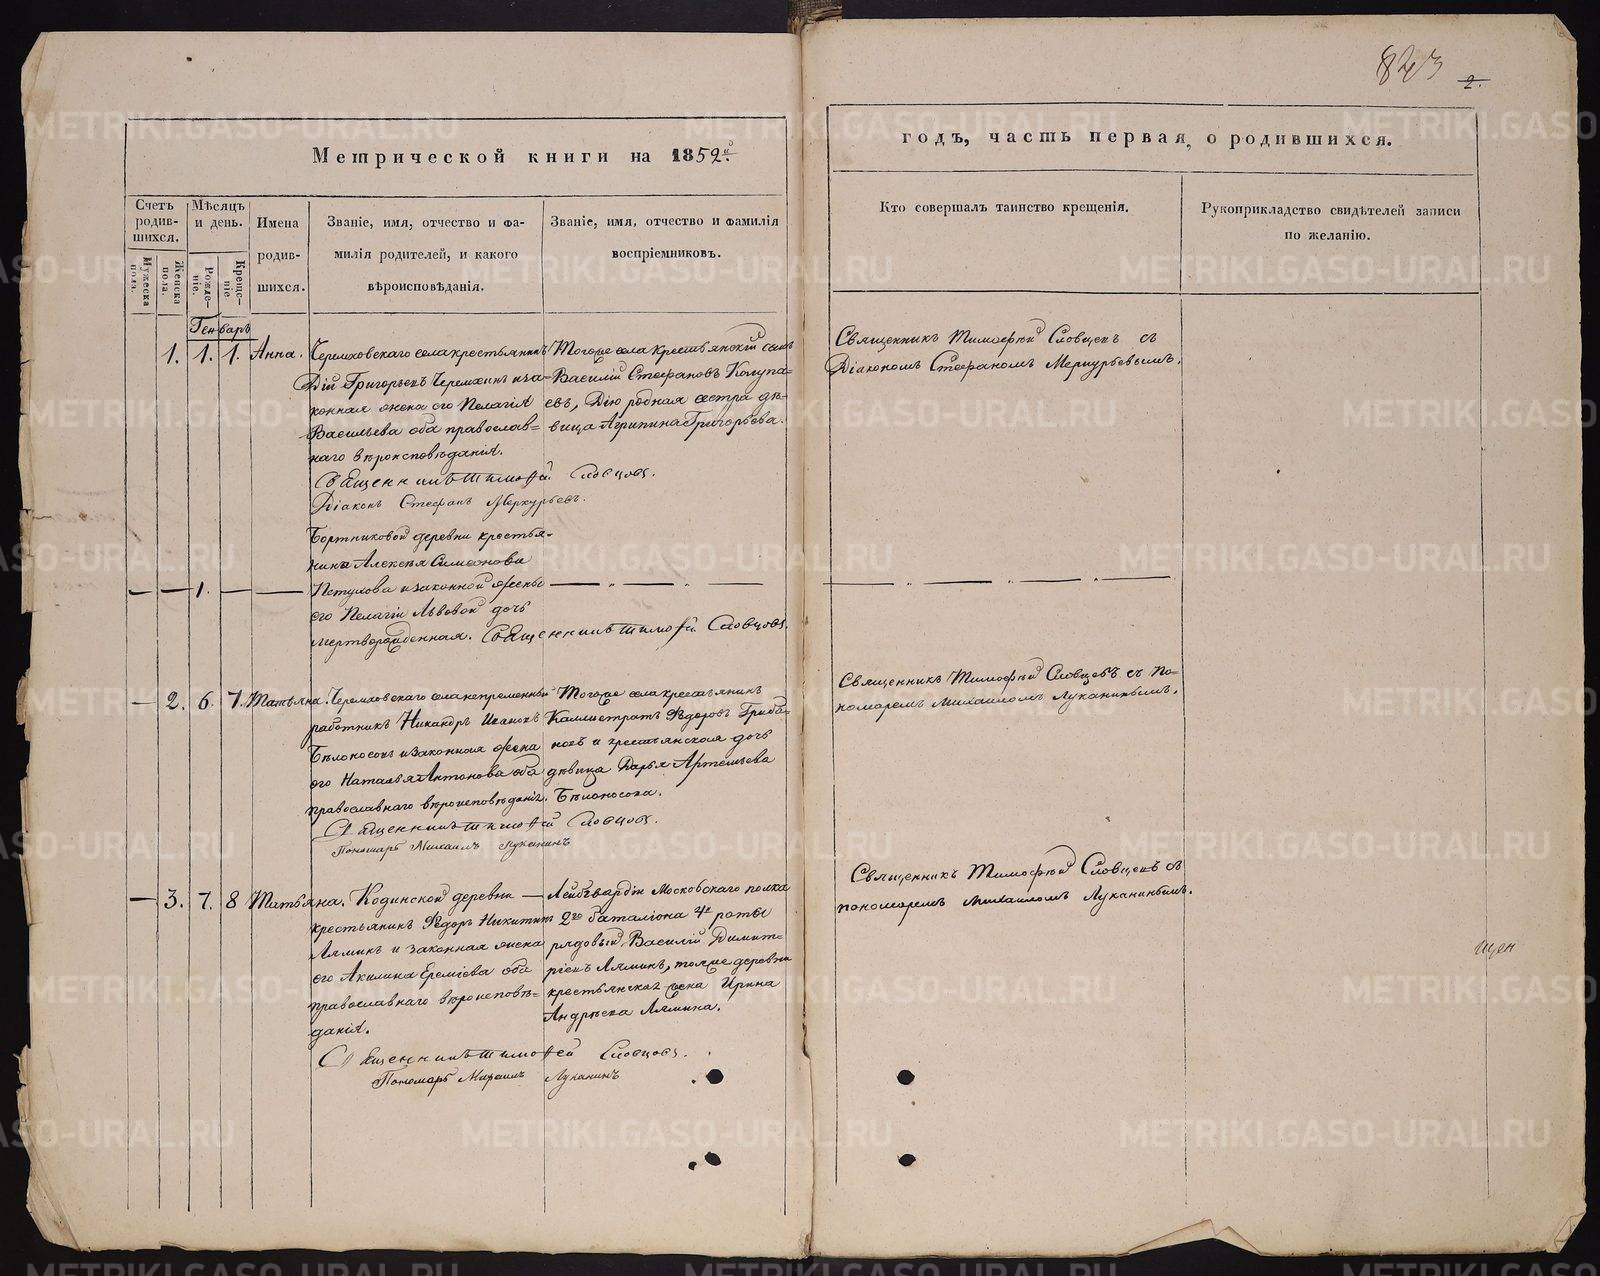 843
2.
Метрической книги на 1852й
годъ, часть первая, о родившихся.
Счетъ родив-шихся.
Мужеска пола.
Женска пола.
Мѣсяцъ и день.
Рожде-ніе.
Креще-ніе
Имена родив-шихся.
Званіе, имя, отчество и фа-
милія родителей, и какого
вѣроисповѣданія.
Званіе, имя, отчество и фамилія
воспріемниковъ.
Кто совершалъ таинство крещенія.
Рукоприкладство свидѣтелей записи
по желанію.
Генварь
1. 1. 1. Анна.
Черемховскаго села крестьянинъ
Дій Григорьевъ Черемхинъ и за-
конная жена его Пелагія
Васильева оба православ-
наго вѣроисповѣданія.
Тогоже села крестьянскій сынъ
Василій Стефановъ Колупа-
евъ, Дію родная сестра дѣ-
вица Агрипина Григорьева.
Священникъ Тимофей Словцовъ.
Діаконъ Стефанъ Меркурьевъ.
Священникъ Тимофей Словцевъ съ
Діакономъ Стефаномъ Меркурьевымъ.
— — 1. — —
Бортниковой деревни крестья-
нина Алексѣя Симеонова
Петухова и законной жены
его Пелагіи Львовой дочь
мертворожденная. Священникъ Тимофей Словцовъ.
— 2. 6. 7. Татьяна.
Черемховскаго села непременный
работникъ Никандръ Ивановъ
Бѣлоносовъ и законная жена
его Наталья Антонова оба
православнаго вѣроисповѣданія.
Тогоже села крестьянинъ
Каллистратъ Ѳедоровъ Гриба-
новъ и крестьянская дочь
дѣвица Дарья Артемьева
Бѣлоносова.
Священникъ Тимофей Словцовъ.
Пономарь Михаилъ Луканинъ
Священникъ Тимофей Словцевъ съ по-
номаремъ Михаиломъ Луканинымъ.
— 3. 7. 8 Татьяна.
Кодинской деревни —
крестьянинъ Ѳедоръ Никитинъ
Ляминъ и законная жена
его Акилина Еремѣева оба
православнаго вѣроисповѣ-
данія.
Лейбгвардіи Московскаго полка
2го баталіона 4й роты
рядовый Василій Димит-
ріевъ Ляминъ, тойже деревни
крестьянская жена Ирина
Андрѣева Лямина.
Священникъ Тимофей Словцовъ.
Пономарь Михаилъ Луканинъ
Священникъ Тимофей Словцевъ съ
пономаремъ Михаиломъ Луканинымъ.
METRIKI.GASO-URAL.RU